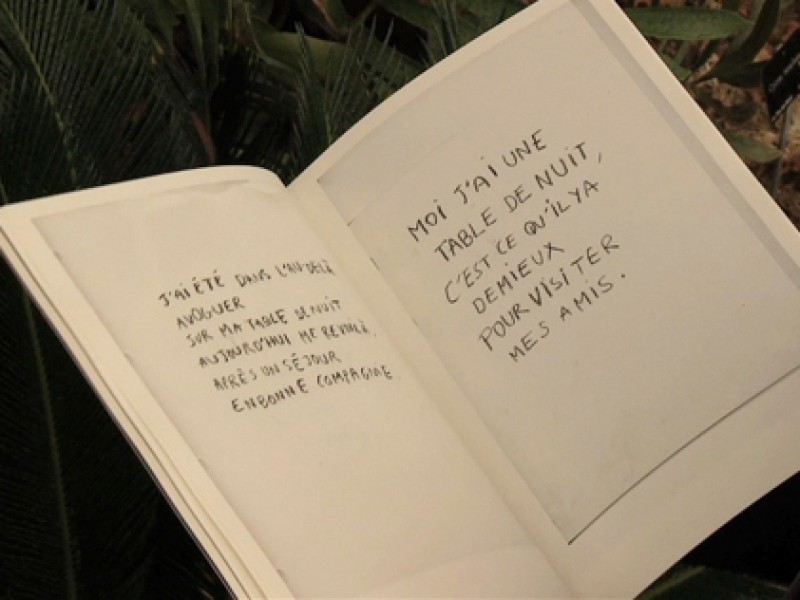 J'AI ÉTÉ DANS L'AU-DELÀ
AVOGUER
SUR MA TABLE DE NUIT
AUJOURD'HUI ME REVOILÀ,
APRÈS UN SÉJOUR
EN BONNE COMPAGNIE.
MOI J'AI UNE
TABLE DE NUIT,
C'EST CE QU'IL YA
DE MIEUX
POUR VISITER
MES AMIS.